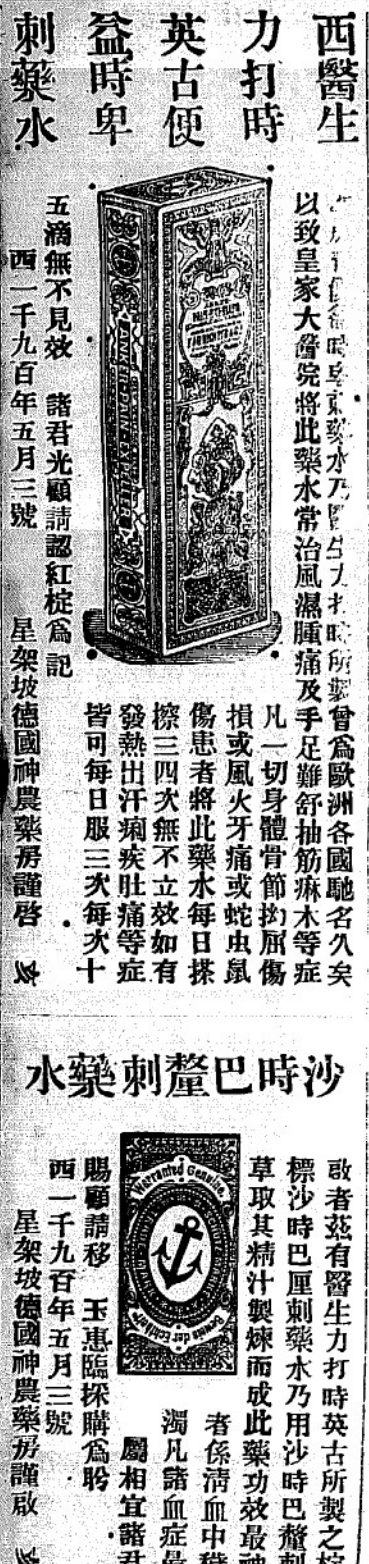 西醫生
力打時
英古便
益時卑
刺藥水
時卑刺藥水乃醫生力打時所製曾為歐洲各國馳名久矣
以致皇家大醫院將此藥水常治風濕腫痛及手足難舒抽筋痳木等症
凡一切身體骨節拘屈傷
損或風火牙痛或蛇虫鼠
傷患者將此藥水每日搽
擦三四次無不立效如有
發熱出汗痢疾肚痛等症
皆可每日服三次每次十
五滴無不見效 諸君光顧請認紅椗為記
西一千九百年五月三號 星架坡德國神農藥房謹啓
沙時巴釐刺藥水
啟者茲有醫生力打時英古所製之椗
標沙時巴厘刺藥水乃用沙時巴釐刺
草取其精汁製煉而成此藥功效最神
者係清血中穢
濁凡諸血症最
屬相宜諸君
Warranted Genuine.
賜顧請移 玉惠臨採購為盼
西一千九百年五月三號
星架坡德國神農藥房謹啟